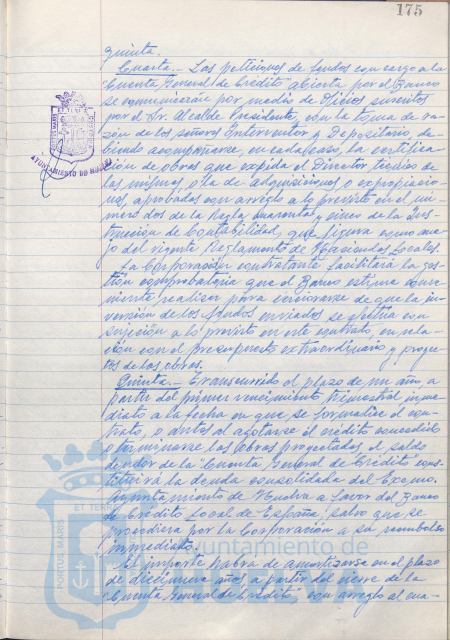 175
quinta.
Cuarta.- Las peticiones de fondos con cargo a la
"Cuenta General de Crédito" abierta por el Banco
se comunicarán por medio de Oficios suscritos
por el Sr. Alcalde Presidente, con la toma de ra-
zón de los señores Interventor y Depositario, de-
biendo acompañarse, en cada caso, la certifica-
ción de obras que expida el Director técnico de
las mismas o la de adquisiciones o expropiacio-
nes, aprobadas con arreglo a lo previsto en el nú-
mero dos de la Regla cuarenta y cinco de la Ins-
trucción de Contabilidad, que figura como ane-
jo del vigente Reglamento de Haciendas Locales.
La Corporación contratante facilitará la ges-
tión comprobatoria que el Banco estime conve-
niente realizar para cerciorarse de que la in-
versión de los fondos enviados se efectúa con
sujeción a lo previsto en este contrato en rela-
ción con el presupuesto extraordinario y proyec-
tos de las obras.
Quinta.- Transcurrido el plazo de un año, a
partir del primer vencimiento trimestral inme-
diato a la fecha en que se formalice el con-
trato, o antes al agotarse el crédito concedido
o terminarse las obras proyectadas, el saldo
deudor de la "Cuenta General de Crédito" cons-
tituirá la deuda consolidada del Excmo.
Ayuntamiento de Huelva a favor del Banco
de Crédito Local de España, salvo que se
procediera por la Corporación a su reembolso
inmediato.
El importe habrá de amortizarse en el plazo
de diecinueve años, a partir del cierre de la
"Cuenta General de Crédito", con arreglo al cua-
AYUNTAMIENTO DE HUELVA
PORTUS MARIS
ET TERR
Ayuntamiento de